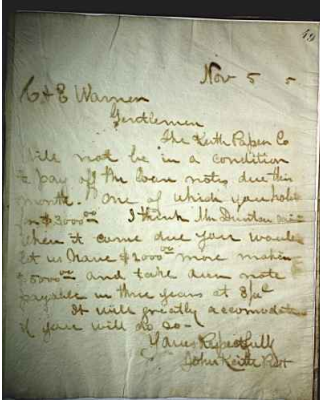 49
Nov 5 5
C & E Warren
Gentlemen
The Keith Paper Co
will not be in a condition
to pay off the loan notes due this
month. One of which you hold
for $3000 00 I think Mr
when it came due you would
let us have $2000 00 more making
$5000 00 and take our note
payable in three years at 8 pr ct
It will greatly accomodate
if you will do so-
Yours Respectfully
John Keith Prst